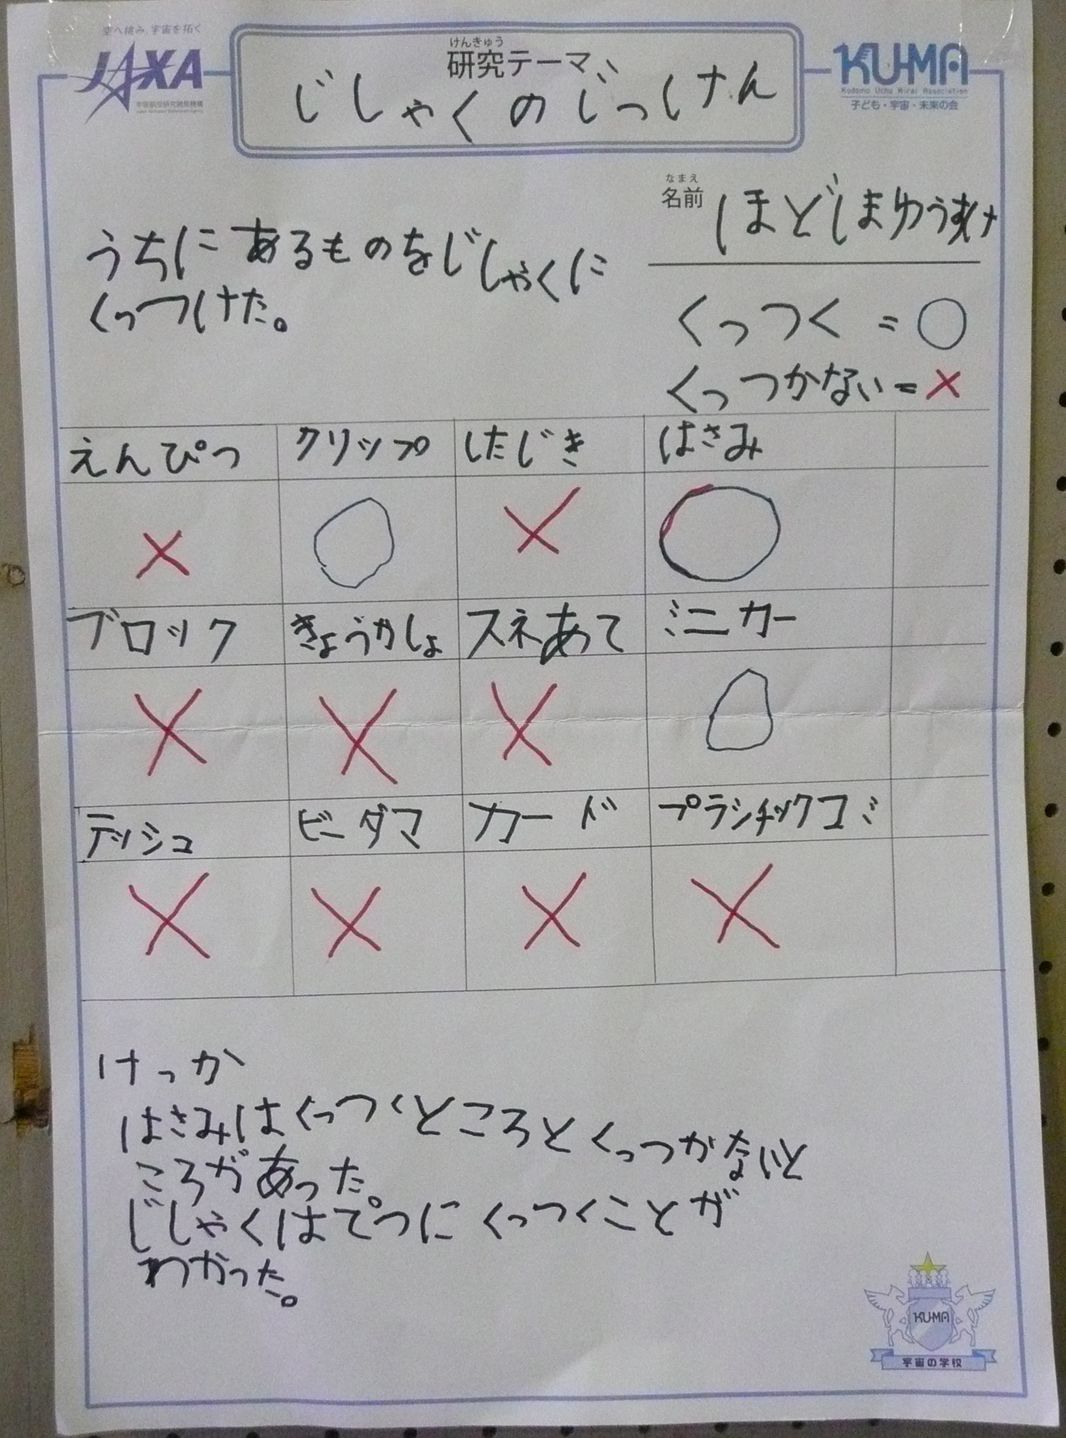 空へ挑み、宇宙を拓く
JAXA
宇宙航空研究開発機構
Japan Aerospace Exploration Agency
けんきゅう
研究テーマ
じしゃくのじっけん
KU-MA
Kodomo Uchu Mirai Association
子ども・宇宙・未来の会
なまえ
名前 ほどしまゆうすけ
うちにあるものをじしゃくに
くっつけた。
くっつく = ○
くっつかない = ×
えんぴつ クリップ したじき はさみ
× ○ × ○
ブロック きょうかしょ スネあて ミニカー
× × × ○
テッシュ ビーダマ カード プラシチックゴミ
× × × ×
けっか
はさみはくっつくところとくっつかないと
ころがあった。
じしゃくはてつにくっつくことが
わかった。
KU-MA
宇宙の学校